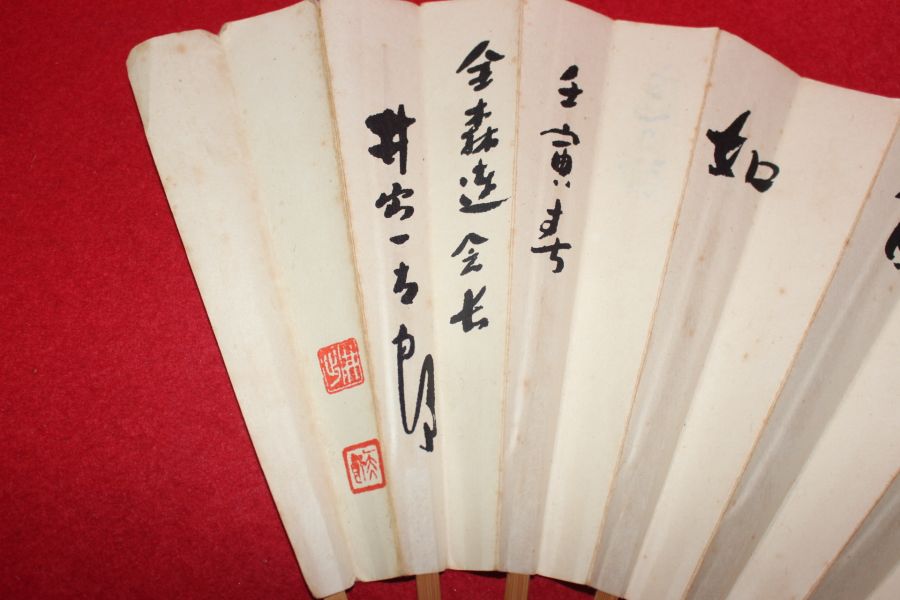 如
壬寅春
全森連会長
井出一太郎